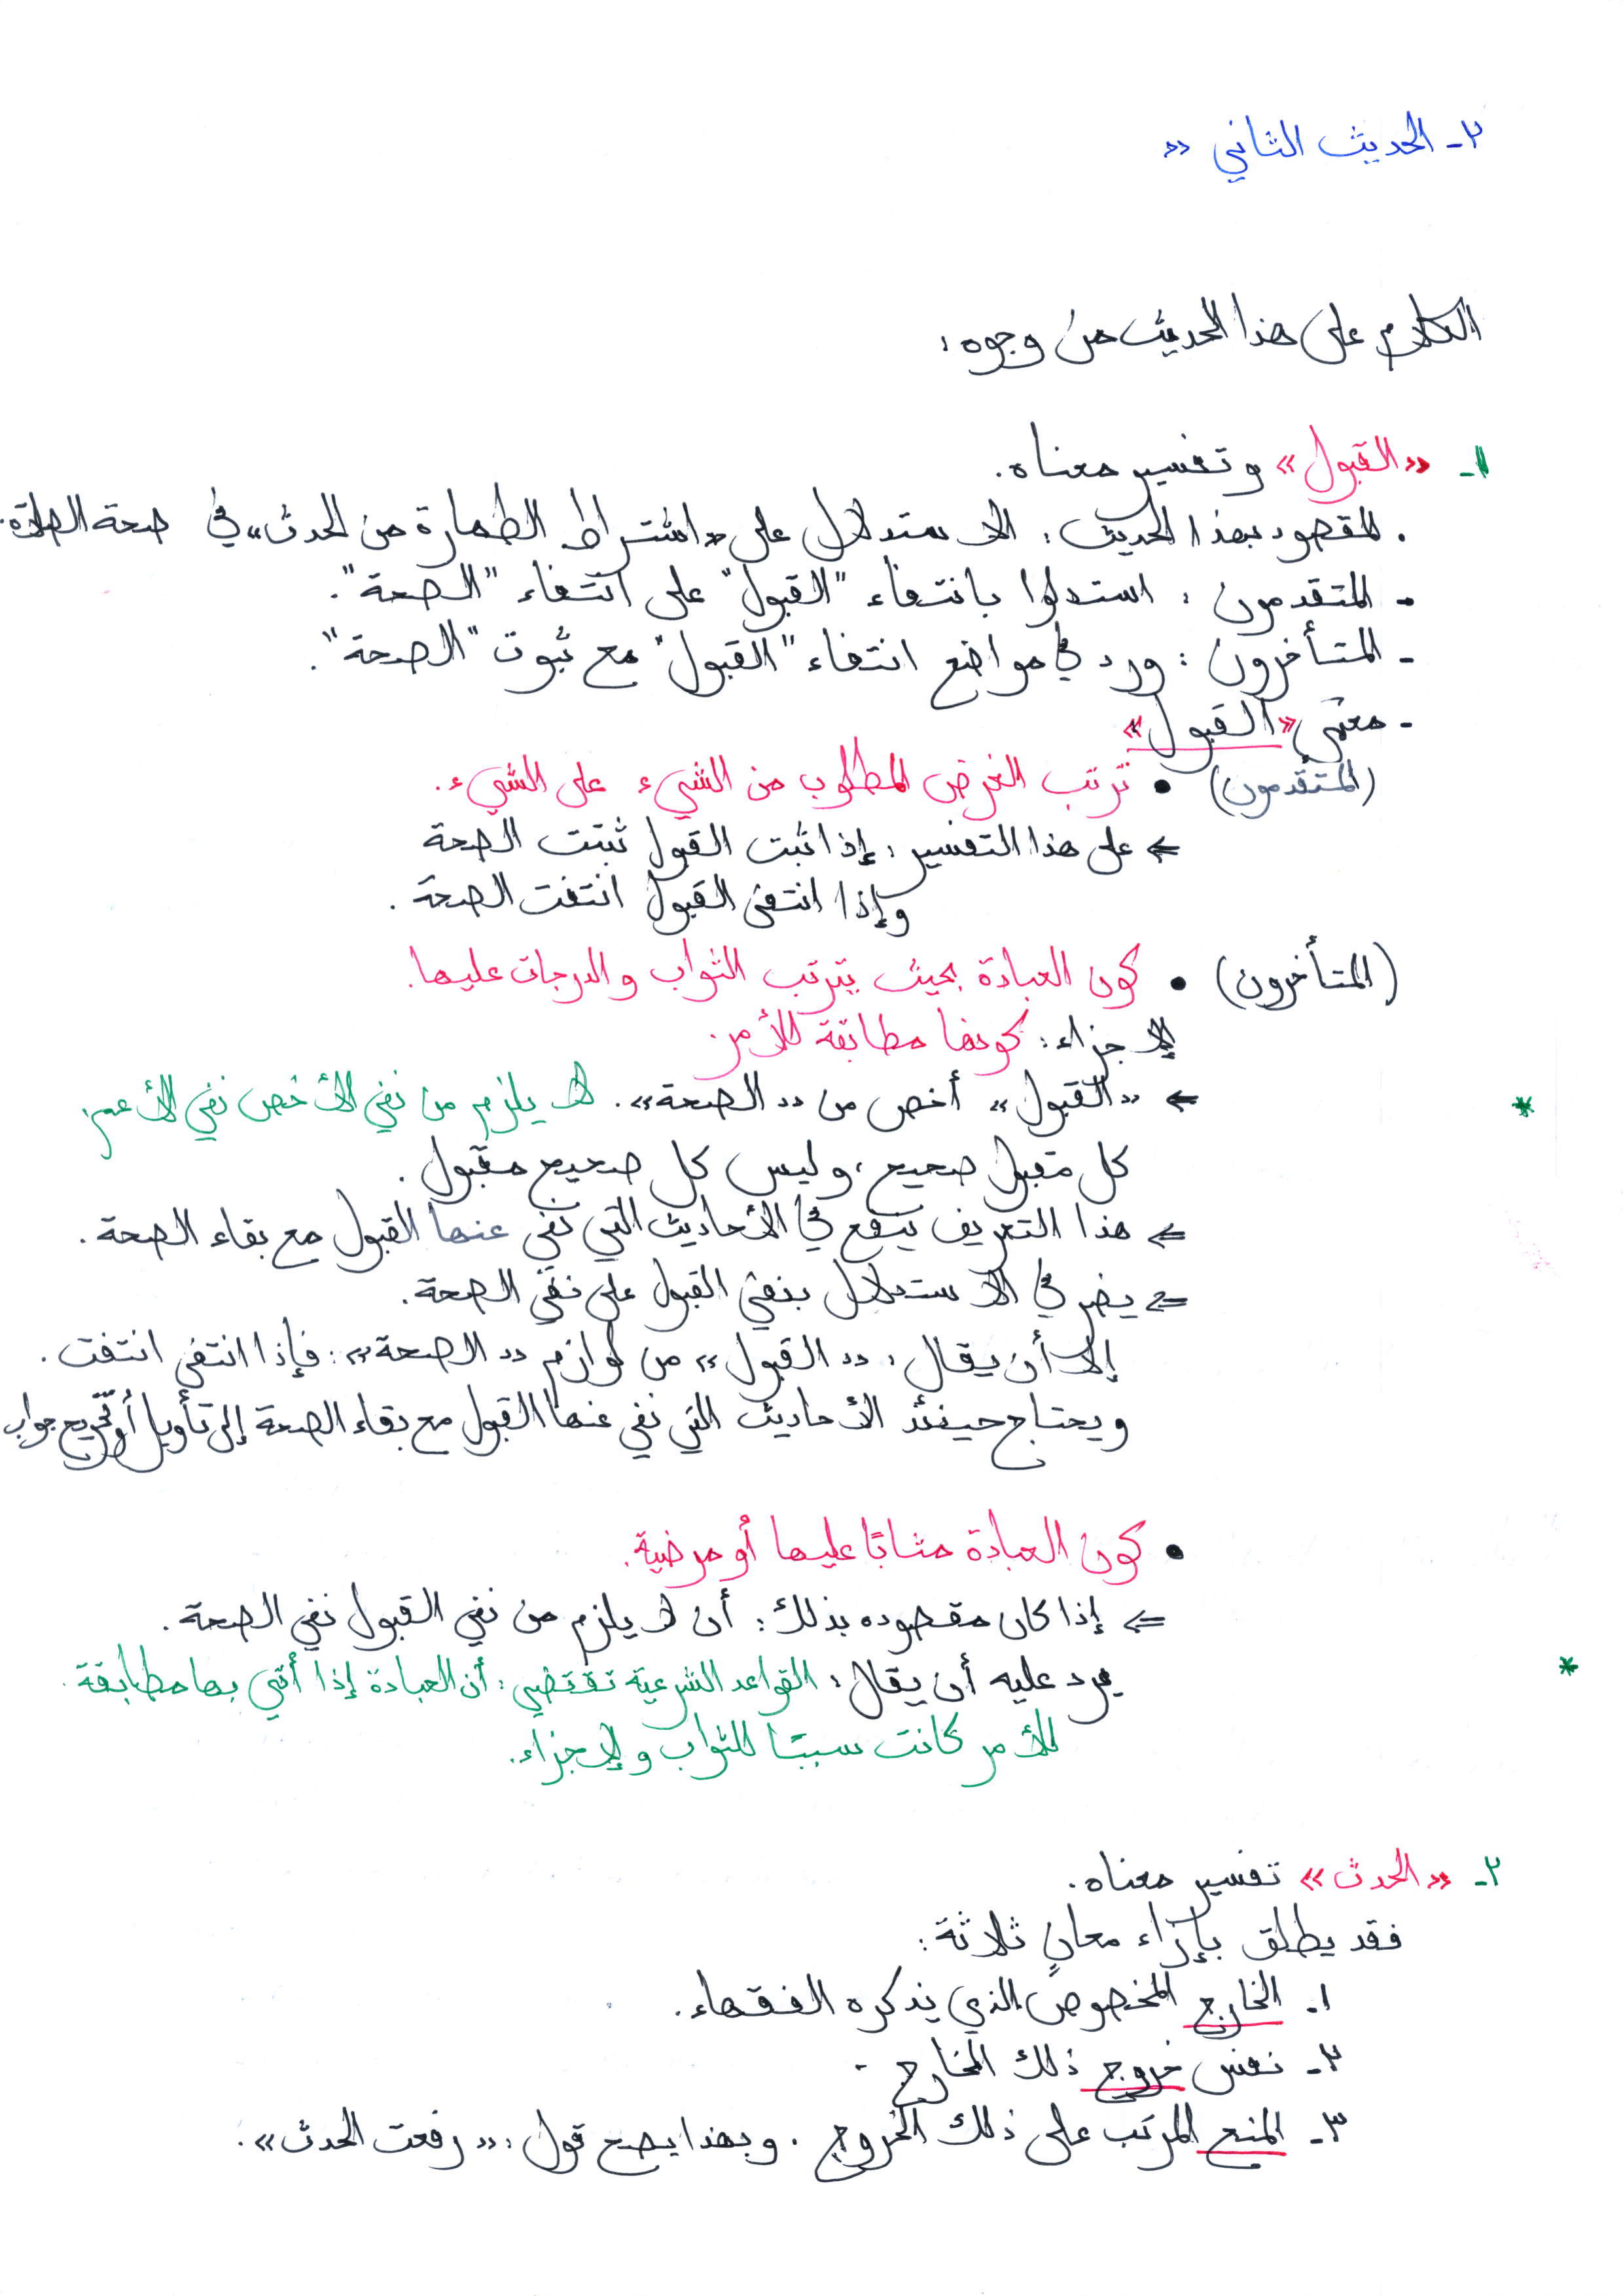 ٢- الحديث الثاني «
الكلام على هذا الحديث من وجوه:
١- «القبول» وتفسير معناه.
. المقصود بهذا الحديث: الاستدلال على «اشتراط الطهارة من الحدث» في صحة الصلاة.
- المتقدمون: استدلوا بانتفاء "القبول" على انتفاء "الصحة".
- المتأخرون: ورد في مواضع انتفاء "القبول" مع ثبوت "الصحة".
- معنى «القبول»
(المتقدمون) • ترتب الغرض المطلوب من الشيء على الشيء.
⇐ على هذا التفسير: إذا ثبت القبول ثبتت الصحة
وإذا انتفى القبول انتفت الصحة.
(المتأخرون) • كون العبادة بحيث يترتب الثواب والدرجات عليها.
الإجزاء: كونها مطابقة للأمر.
* ⇐ «القبول» أخص من «الصحة». لا يلزم من نفي الأخص نفي الأعم.
كل مقبول صحيح، وليس كل صحيح مقبول.
⇐ هذا التعريف ينفع في الأحاديث التي نفي عنها القبول مع بقاء الصحة.
⇐ يضر في الاستدلال بنفي القبول على نفي الصحة.
إلا أن يقال: «القبول» من لوازم «الصحة»: فإذا انتفى انتفت.
ويحتاج حينئذ الأحاديث التي نفي عنها القبول مع بقاء الصحة إلى تأويل أو تخريج جواب
• كون العبادة مثابًا عليها أو مرضية.
⇐ إذا كان مقصوده بذلك: أن لا يلزم من نفي القبول نفي الصحة.
* يرد عليه أن يقال: القواعد الشرعية تقتضي: أن العبادة إذا أتي بها مطابقة
للأمر كانت سببًا للثواب والإجزاء.
٢- «الحدث» تفسير معناه.
فقد يطلق بإزاء معانٍ ثلاثة:
١. الخارج المخصوص الذي يذكره الفقهاء.
٢- نفس خروج ذلك الخارج.
٣- المنع المرتب على ذلك الخروج. وبهذا يصح قول: «رفعت الحدث».